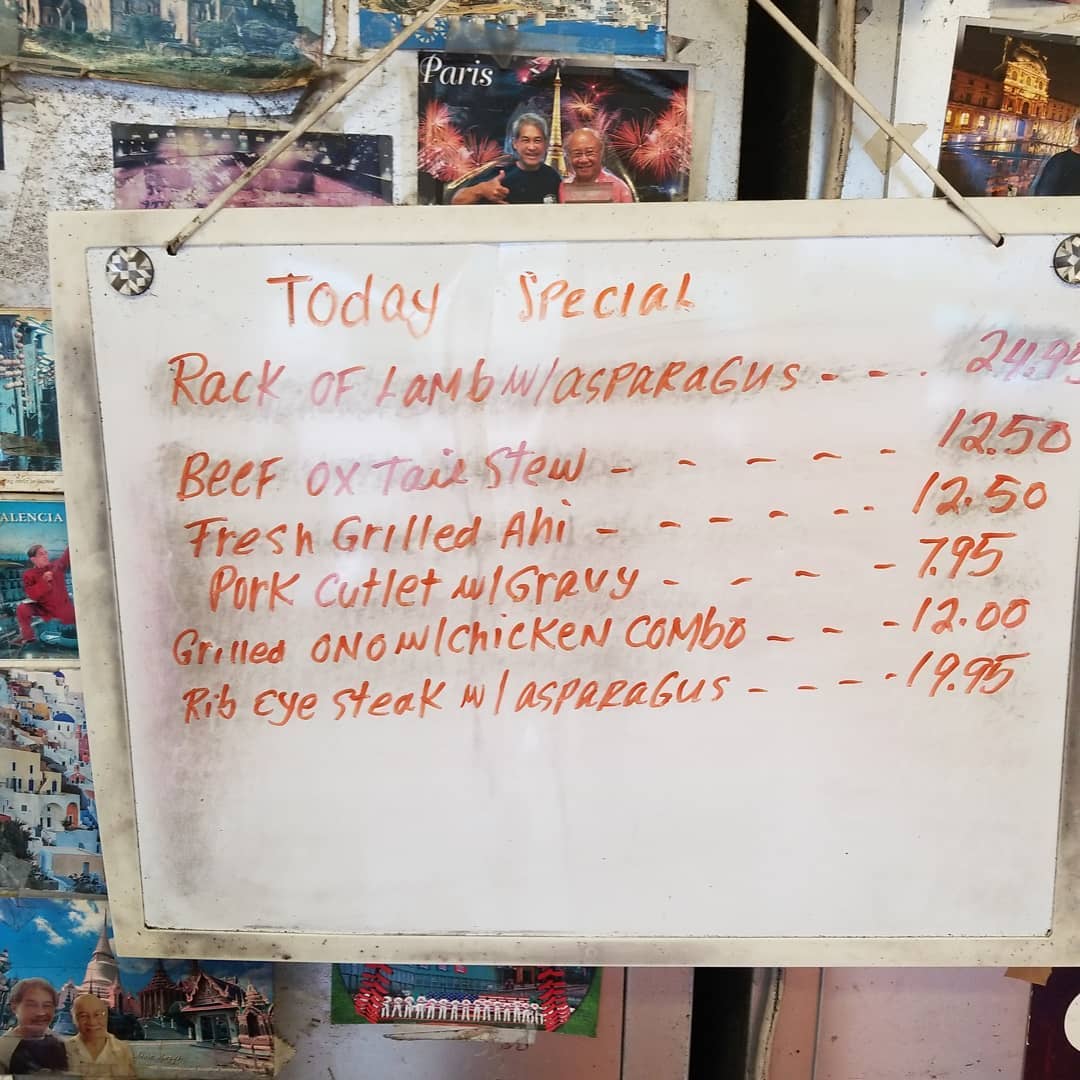 Paris
Today Special
Rack OF Lamb w/asparagus - - . 24.95
Beef ox Tail Stew - - - - - 12.50
Fresh Grilled Ahi - - - - - -- 12.50
Pork cutlet w/Gravy - - - - 7.95
Grilled ONO w/chicken COMbO - - - 12.00
Rib Eye steak w/asparagus - - - - - 19.95
ALENCIA